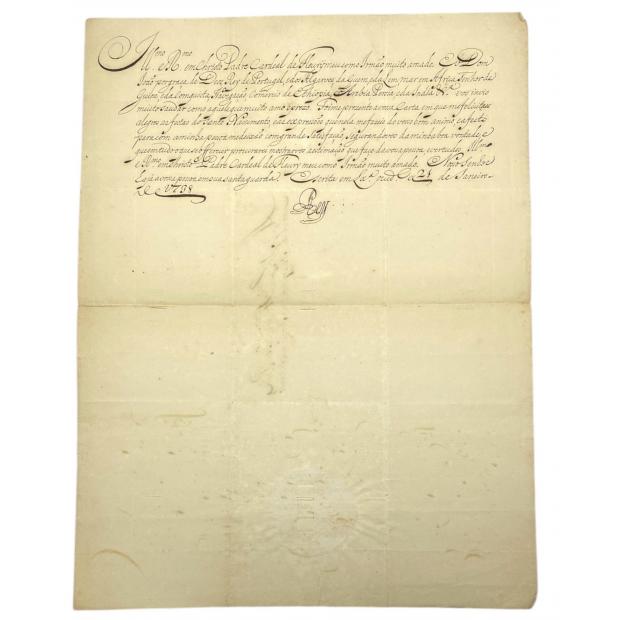 Ill.mo
e R.mo em Christo Padre Cardeal de Fleury meu como Irmão muito amado. Eu Dom
João por graça de Deos Rey de Portugal, e dos Algarves, da quem, e da Lem, mar em Africa Senhor de
Guiné, e da Conquista, Navegação, Comercio de Ethiopia, Arabia, Persia, e da India &.ª vos invio
muito saudar como aquele que muito amo e prezo. Foime prezente a vossa Carta, em que me felicitaes
alegres as festas do Santo Nascimento, e as expressões que nela me fazeis do vosso bom animo, e afecto
para com a minha pessoa me deixão com grande satisfação, segurandovos da minha boa vontade, e
que em tudo o que se offerecer procurarei mostrarvos a estimação que faço da vossa pessoa, e virtudes. Ill.mo
e R.mo em Christo Padre Cardeal de Fleury meu como Irmão muito amado. Nosso Senhor
haja a vossa pessoa em sua santa guarda. Escrita em Lx.ª a 21 de Janeiro
de 1738
Rey